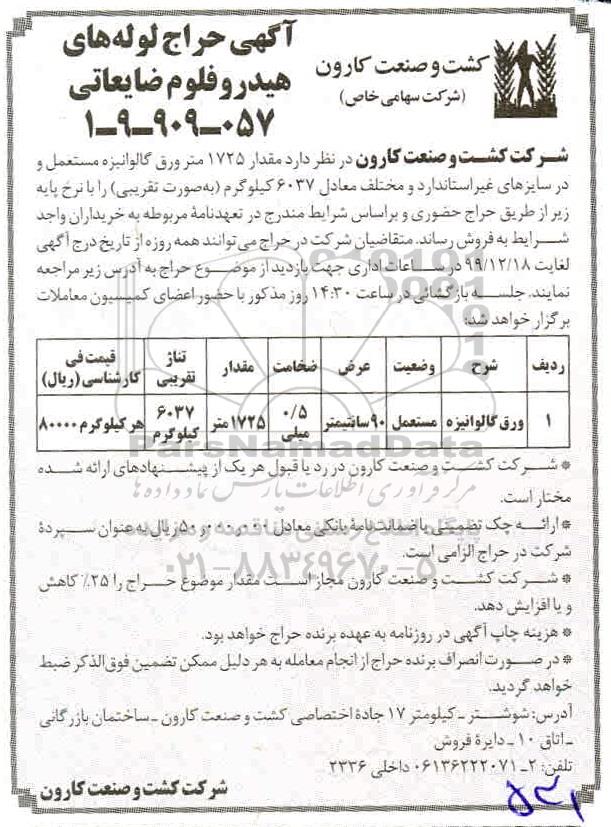 آگهی حراج لوله‌های
هیدروفلوم ضایعاتی
۱ـ۹ـ۹۰۹ـ۰۵۷
کشت و صنعت کارون
(شرکت سهامی خاص)
شرکت کشت و صنعت کارون در نظر دارد مقدار ۱۷۲۵ متر ورق گالوانیزه مستعمل و
در سایزهای غیراستاندارد و مختلف معادل ۶۰۳۷ کیلوگرم (به‌صورت تقریبی) را با نرخ پایه
زیر از طریق حراج حضوری و براساس شرایط مندرج در تعهدنامهٔ مربوطه به خریداران واجد
شرایط به فروش رساند. متقاضیان شرکت در حراج می‌توانند همه روزه از تاریخ درج آگهی
لغایت ۹۹/۱۲/۱۸ در ساعات اداری جهت بازدید از موضوع حراج به آدرس زیر مراجعه
نمایند. جلسه بازگشائی در ساعت ۱۴:۳۰ روز مذکور با حضور اعضای کمیسیون معاملات
برگزار خواهد شد:
ردیف شرح وضعیت عرض ضخامت مقدار تناژ تقریبی قیمت فی کارشناسی (ریال)
۱ ورق گالوانیزه مستعمل ۹۰ سانتیمتر ۰/۵ میلی ۱۷۲۵ متر ۶۰۳۷ کیلوگرم هر کیلوگرم ۸۰۰۰۰
ParsNamadData
* شرکت کشت و صنعت کارون در رد یا قبول هر یک از پیشنهادهای ارائه شده
مرکز فرآوری اطلاعات پارس نماد داده‌ها
مختار است.
* ارائه چک تضمینی یا ضمانت‌نامهٔ بانکی معادل ۵۰٫۰۰۰٫۰۰۰ ریال به عنوان سپردهٔ
شرکت در حراج الزامی است.
۰۲۱-۸۸۳۴۹۶۷۰-۵
* شرکت کشت و صنعت کارون مجاز است مقدار موضوع حراج را ۲۵٪ کاهش
و یا افزایش دهد.
* هزینه چاپ آگهی در روزنامه به عهده برنده حراج خواهد بود.
* در صورت انصراف برنده حراج از انجام معامله به هر دلیل ممکن تضمین فوق‌الذکر ضبط
خواهد گردید.
آدرس: شوشتر ـ کیلومتر ۱۷ جادهٔ اختصاصی کشت و صنعت کارون ـ ساختمان بازرگانی
ـ اتاق ۱۰ ـ دایرهٔ فروش
تلفن: ۲ـ ۰۶۱۳۶۲۲۲۰۷۱ داخلی ۲۳۳۶
شرکت کشت و صنعت کارون